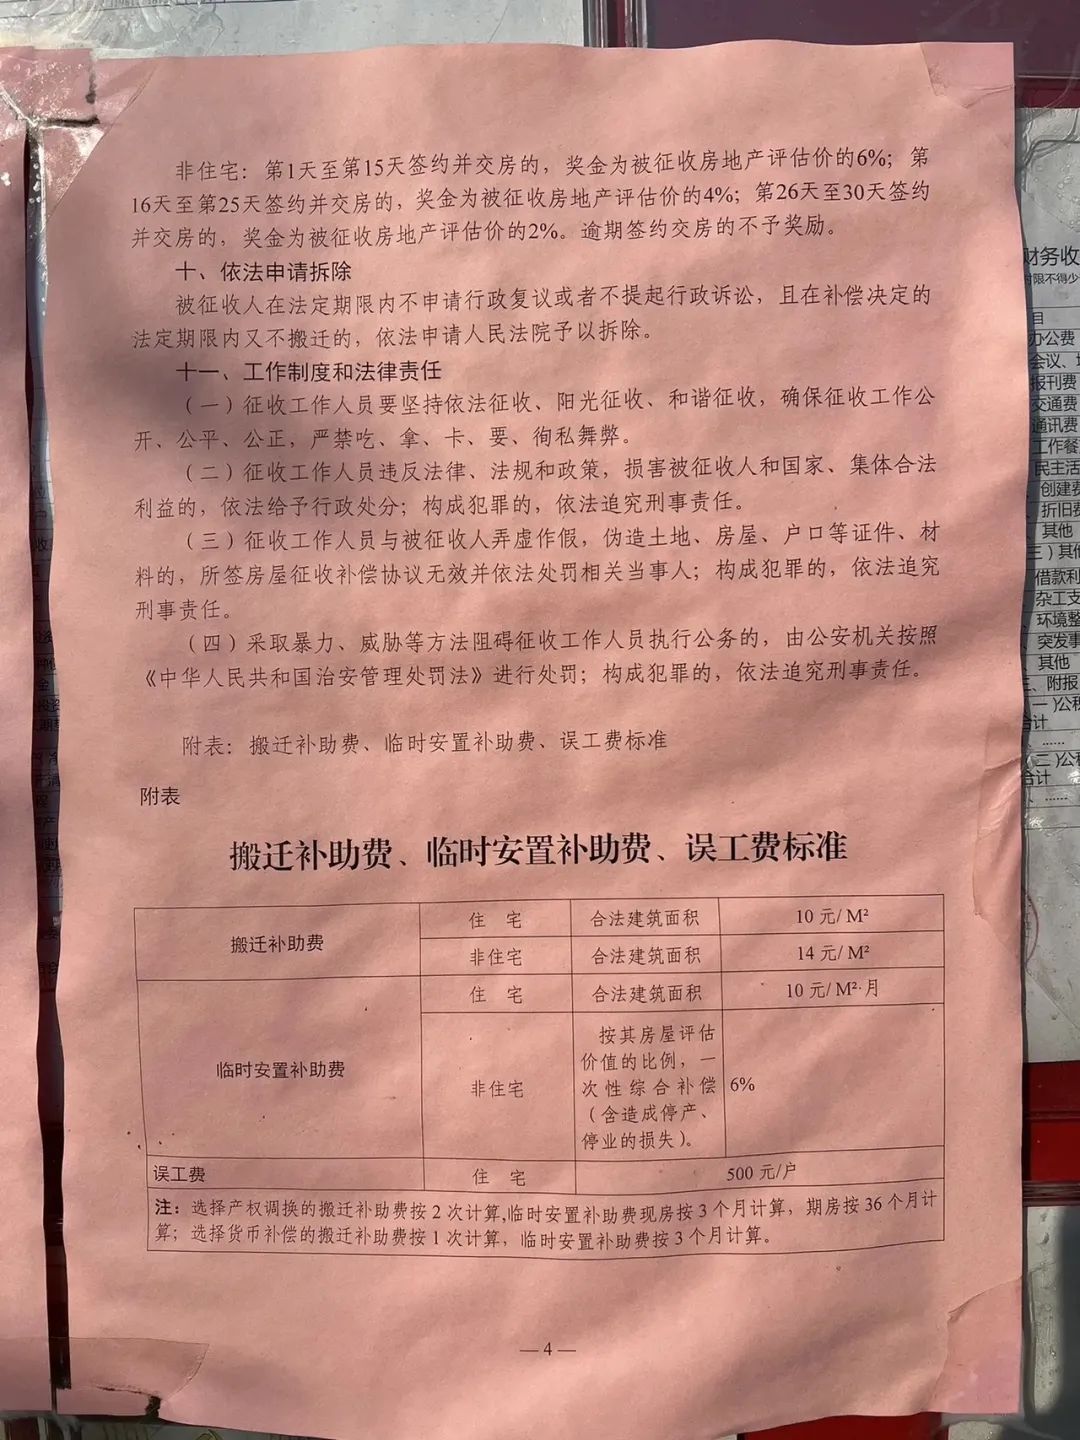 非住宅：第1天至第15天签约并交房的，奖金为被征收房地产评估价的6%；第
16天至第25天签约并交房的，奖金为被征收房地产评估价的4%；第26天至30天签约
并交房的，奖金为被征收房地产评估价的2%。逾期签约交房的不予奖励。
十、依法申请拆除
被征收人在法定期限内不申请行政复议或者不提起行政诉讼，且在补偿决定的
法定期限内又不搬迁的，依法申请人民法院予以拆除。
十一、工作制度和法律责任
（一）征收工作人员要坚持依法征收、阳光征收、和谐征收，确保征收工作公
开、公平、公正，严禁吃、拿、卡、要、徇私舞弊。
（二）征收工作人员违反法律、法规和政策，损害被征收人和国家、集体合法
利益的，依法给予行政处分；构成犯罪的，依法追究刑事责任。
（三）征收工作人员与被征收人弄虚作假，伪造土地、房屋、户口等证件、材
料的，所签房屋征收补偿协议无效并依法处罚相关当事人；构成犯罪的，依法追究
刑事责任。
（四）采取暴力、威胁等方法阻碍征收工作人员执行公务的，由公安机关按照
《中华人民共和国治安管理处罚法》进行处罚；构成犯罪的，依法追究刑事责任。
附表：搬迁补助费、临时安置补助费、误工费标准
附表
搬迁补助费、临时安置补助费、误工费标准
搬迁补助费 住 宅 合法建筑面积 10 元/ M²
非住宅 合法建筑面积 14 元/ M²
临时安置补助费 住 宅 合法建筑面积 10 元/ M²·月
非住宅 按其房屋评估
价值的比例，一
次性综合补偿 6%
（含造成停产、
停业的损失）。
误工费 住 宅 500 元/户
注：选择产权调换的搬迁补助费按 2 次计算,临时安置补助费现房按 3 个月计算，期房按 36 个月计
算；选择货币补偿的搬迁补助费按 1 次计算，临时安置补助费按 3 个月计算。
— 4 —
财务收
时限不得少
目
办公费
会议、
报刊费
交通费
通讯费
工作餐
民主活
创建费
折旧费
其他
三）其他
借款利
杂工支
环境整
突发事
其他
三、附报
一）公积
合计
……
（二）公积
合计
……